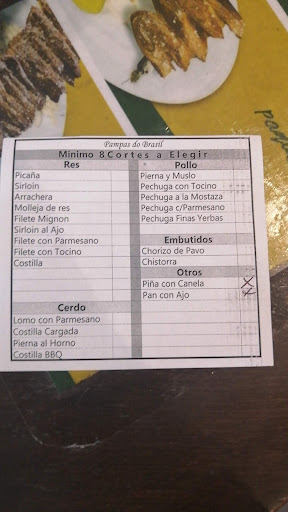 Pampas do Brasil
Minimo 8Cortes a Elegir
Res
Picaña
Sirloin
Arrachera
Molleja de res
Filete Mignon
Sirloin al Ajo
Filete con Parmesano
Filete con Tocino
Costilla
Cerdo
Lomo con Parmesano
Costilla Cargada
Pierna al Horno
Costilla BBQ
Pollo
Pierna y Muslo
Pechuga con Tocino
Pechuga a la Mostaza
Pechuga c/Parmesano
Pechuga Finas Yerbas
Embutidos
Chorizo de Pavo
Chistorra
Otros
Piña con Canela X
Pan con Ajo X